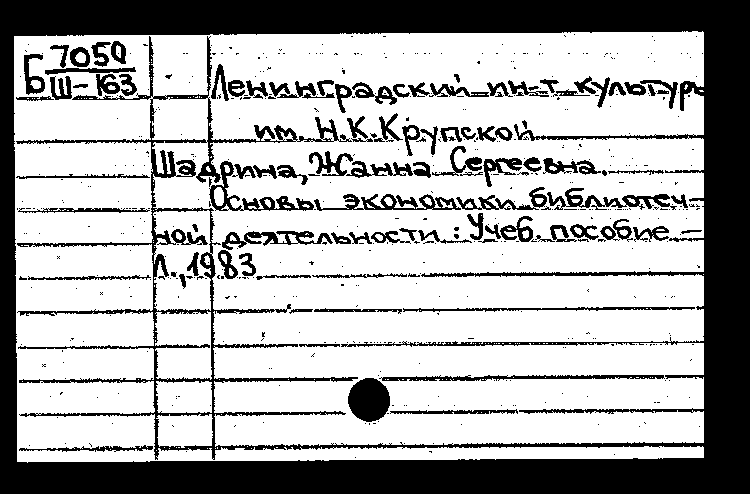 Б 7050
III-163
Ленинградский ин-т культуры
им. Н.К.Крупской
Шадрина, Жанна Сергеевна.
Основы экономики библиотеч-
ной деятельности : Учеб. пособие —
Л., 1983.